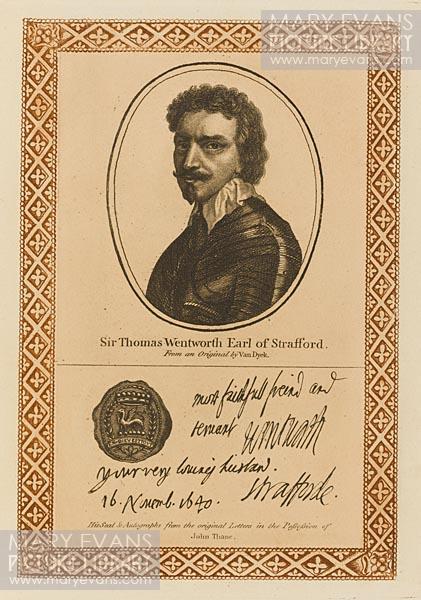 MARY EVANS
PICTURE LIBRARY
www.maryevans.com
Sir Thomas Wentworth Earl of Strafford.
From an Original by Van Dyck.
most faithfull freind and
servant Wentworth
your very loving husband.
16. Novemb. 1640. Strafforde.
His Seal & Autographs from the original Letters in the Possession of
John Thane.
MARY EVANS
PICTURE LIBRARY
www.maryevans.com